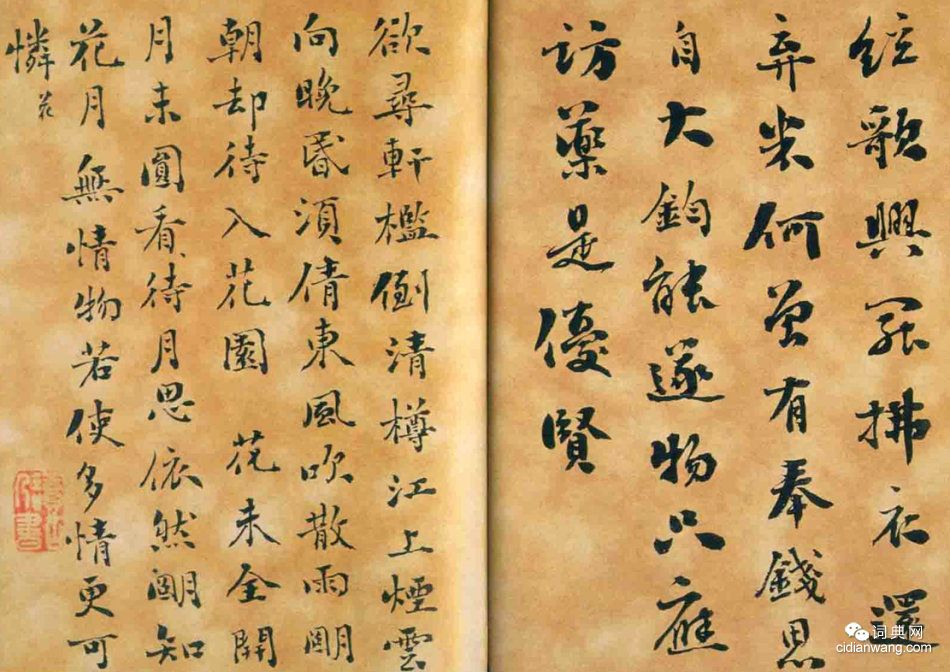 絃歌興罷拂衣還
弃米何曾有奉錢恩
自大鈞能遂物只應
訪藥是優賢
欲尋軒檻倒清樽江上煙雲
向晚昬須倩東風吹散雨明
朝却待入花園 花未全開
月未圓看待月思依然明知
花月無情物若使多情更可
憐 花
词典网
cidianwang.com